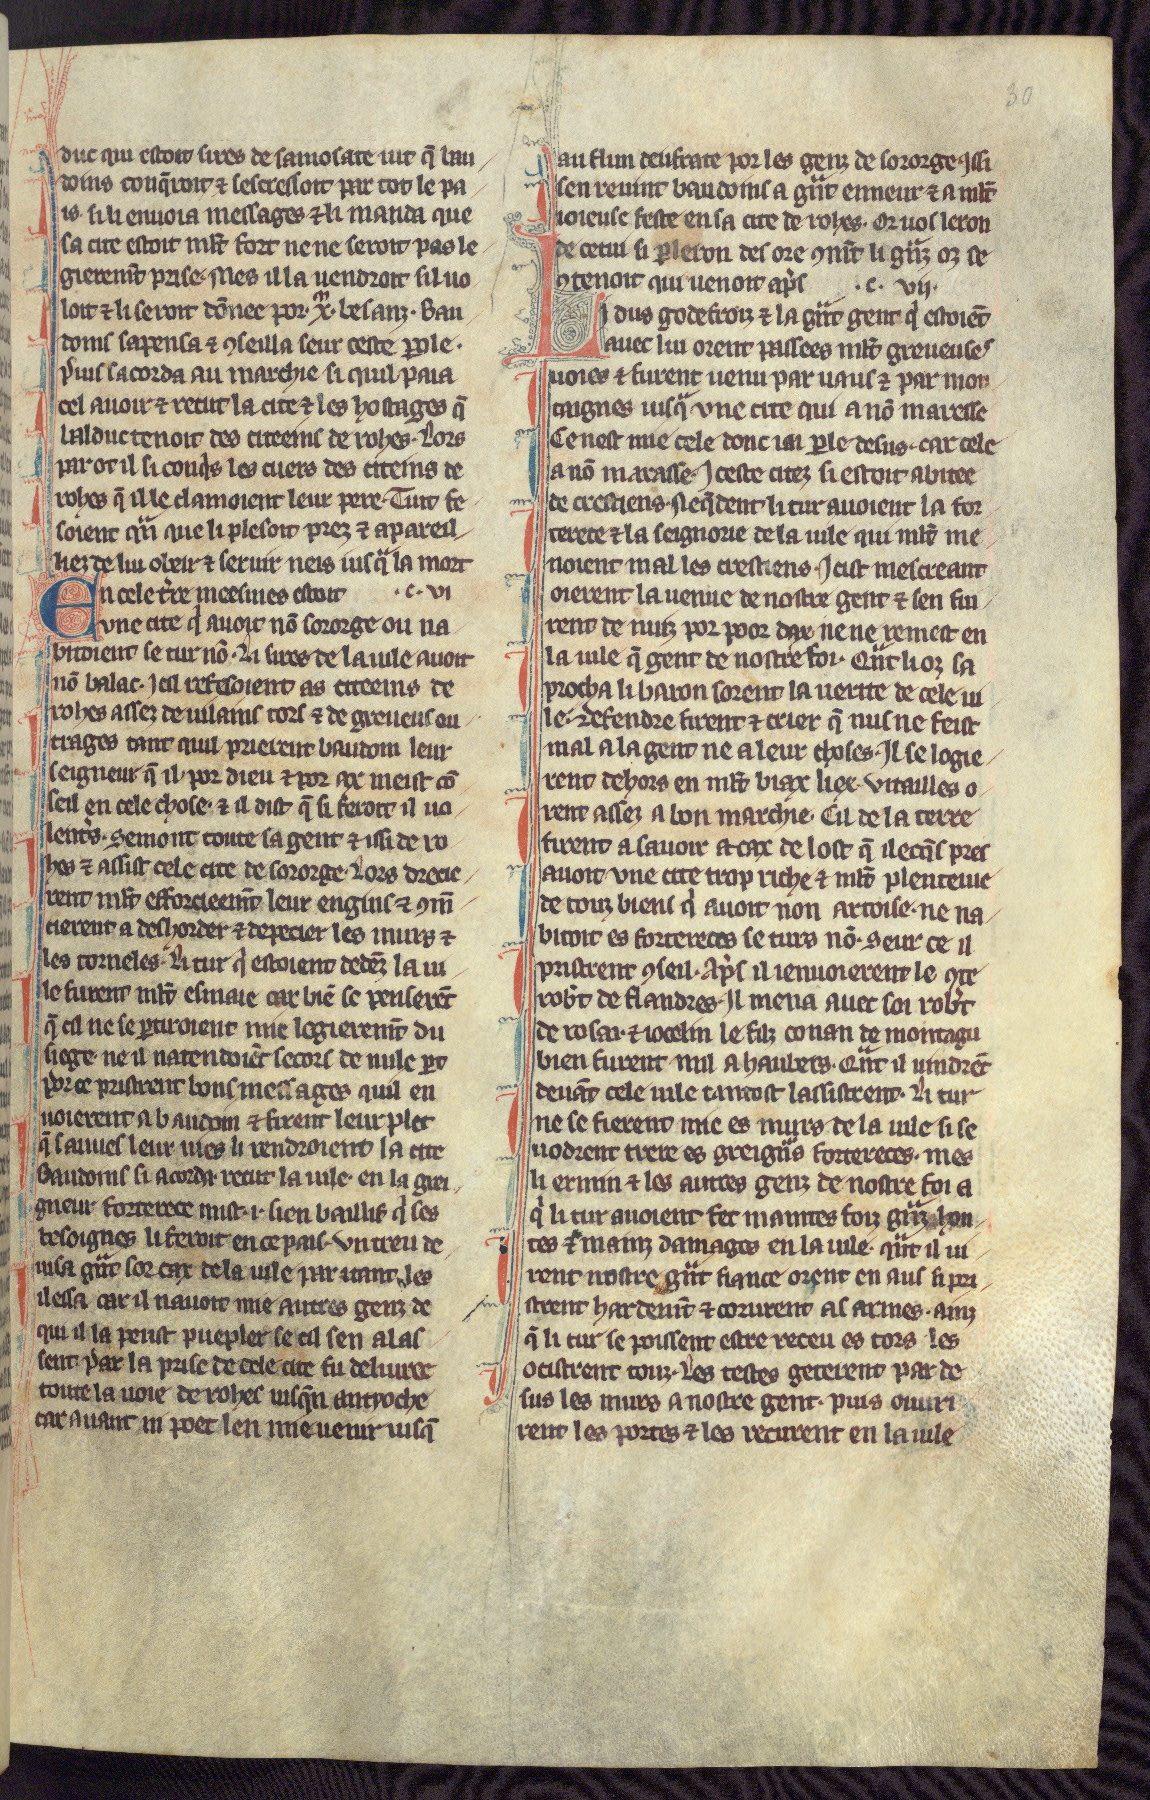 30
duc qui estoit sires de samosate uit q̄ bau
doins conq̄roit ⁊ sescressoit par tot le pa
is. si li enuoia messages ⁊ li manda que
sa cite estoit ml̄t fort ne ne seroit pas le
gierem̄t prise. Mes il la uendroit sil uo
loit ⁊ li seroit dōnee por .x.ͫ besanz. Bau
doins sapensa ⁊ ꝯseilla seur ceste ꝑole.
Puis sacorda au marchie si quil paia
cel auoir ⁊ recut la cite ⁊ les hostages q̄
balduc tenoit des citeeins de rohes. Lors
par ot il si conq̇s les cuers des citeins de
rohes q̄ il le clamoient leur pere. Tuit fe
soient q̄nque li plesoit prez ⁊ apareil
liez de lui obeir ⁊ seruir neis iusq̄ la mort
En cele t̄re meesmes estoit .c. vi
vne cite q̇ auoit nō sororge ou na
bitoient se tur nō. Li sires de la uile auoit
nō balac. Icil refesoient as citeeins de
rohes assez de uilains tors ⁊ de greueus ou
trages tant quil prierent baudoin leur
seigneur q̄ il por dieu ⁊ por ax meist cō
seil en cele chose. ⁊ il dist q̄ si feroit il uo
lent̄s. Semont toute sa gent ⁊ issi de ro
hes ⁊ assist cele cite de sororge. Lors drecie
rent ml̄t efforcieem̄t leur engins ⁊ ꝯm̄
cierent a deshorder ⁊ depecier les murs ⁊
les torneles. Li tur q̇ estoient dedēz la ui
le furent ml̄t esmaie car biē se penserēt
q̄ cil ne se ꝑtiroient mie legierem̄t du
siege. ne il natendoiēt secors de nule ꝑt
Por ce pristrent bons messages quil en
uoierent a baudoin ⁊ firent leur plet
q̄ sauues leur uies li rendroient la cite
Baudoins si acorda recut la uile en la grei
gneur forterece mist .i. sien baillif q̇ ses
besoignes li feroit en ce pais. Vn treu de
uisa gūt sor cax de la uile par itant les
ilessa car il nauoit mie autres genz de
qui il la peust puepler se cil sen alas
sent. Par la prise de cele cite fu deliuree
toute la uoie de rohes iusq̄n antyoche
car auant ni poet len mie uenir iusq̄
au flun deufrate por les genz de sororge. Issi
sen reuint baudoins a gūt enneur ⁊ a ml̄t
ioieuse feste en sa cite de rohes. Or uos leron
de cetui si ꝑleron des ore ꝯm̄t li gūz oz se
ꝯtenoit qui uenoit ap̄s .c. vij.
Li dus godefroiz ⁊ la gūt gent q̇ estoiēt
auec lui orent passees ml̄t greueuses
uoies ⁊ furent uenu par uaus ⁊ par mon
taignes iusq̄ vne cite qui a nō maresse
Ce nest mie cele donc iai ꝑle desus. car cele
a nō marasse. Iceste citez si estoit abitee
de crestiens. Neq̄dent li tur auoient la for
terece ⁊ la seignorie de la uile qui ml̄t me
noient mal les crestiens. Icist mescreant
oierent la uenue de nostre gent ⁊ sen fui
rent de nuiz por poor dax ne ne remest en
la uile q̄ gent de nostre foi. Qūt li oz sa
procha li baron sorent la uerite de cele ui
le. defendre firent ⁊ crier q̄ nus ne feist
mal a la gent ne a leur choses. Il se logie
rent dehors en ml̄t biax liex. Vitailles o
rent assez a bon marchie. Cil de la terre
firent a sauoir a cax de lost q̄ ilecq̄s pres
auoit vne cite trop riche ⁊ ml̄t plenteiue
de touz biens q̇ auoit non artoise. ne na
bitoit es fortereces se turs nō. Seur ce il
pristrent ꝯseil. Ap̄s il ienuoierent le ꝯte
rob̄t de flandres. Il mena auec soi rob̄t
de rosai. ⁊ iocelin le filz conan de montagu
bien furent mil a haubers. Qūt il uindrēt
deuāt cele uile tantost lassistrent. Li tur
ne se fierent mie es murs de la uile si se
uodrent trere es greign̄s fortereces. mes
li ermin ⁊ les autres genz de nostre foi a
q̇ li tur auoient fet maintes foiz gūz hon
tes ⁊ mainz damages en la uile. qūt il ui
rent nostre gūt fiance orent en aus si pri
strent hardem̄t ⁊ corurent as armes. ainz
q̄ li tur se poissent estre receu es tors les
ocistrent touz. Les testes geterent par de
sus les murs a nostre gent. puis ouuri
rent les portes ⁊ les recurent en la uile